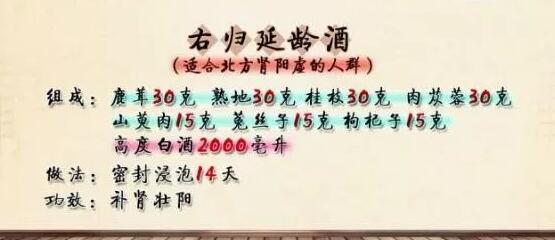 右归延龄酒
(适合北方肾阳虚的人群)
组成：鹿茸30克 熟地30克 桂枝30克 肉苁蓉30克
山萸肉15克 菟丝子15克 枸杞子15克
高度白酒2000毫升
做法：密封浸泡14天
功效：补肾壮阳